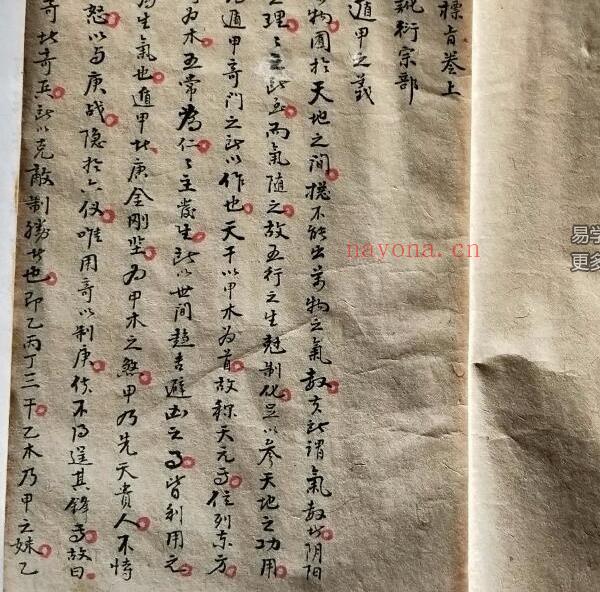 標旨卷上
訛衍宗部
遁甲之義
物囿於天地之間摠不能出萬物之氣数亥所謂氣数者阴阳
之理之主此立而氣随之故五行之生尅制化足以参天地之功用
遁甲奇門之所以作也天干以甲木為首故称天元而位列东方
為木五常為仁之主發生所以世间趋吉避凶之而皆利用之
為生氣也遁甲者庚金刚坚为甲木之煞甲乃先天貴人不恃
怒以与庚战隐於六仪唯用奇以制庚使不得逞其鋒焉故曰
奇者奇兵所以克敵制勝者也即乙丙丁三干乙木乃甲之妹乙
nayona.cn
易学
更多